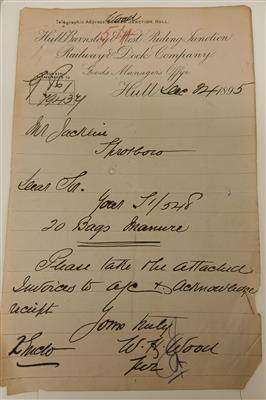 Telegraphic Address, JUNCTION, HULL.
Hull Barnsley & West Riding Junction
Railway & Dock Company
Goods Manager's Office
Hull Dec 24 1895
Mr Jacklin
Sprotboro
Dear Sir,
Your S1/548
20 Bags Manure
Please take the attached
Invoices to a/c & acknowledge
receipt
Yours truly
W. H. Wood